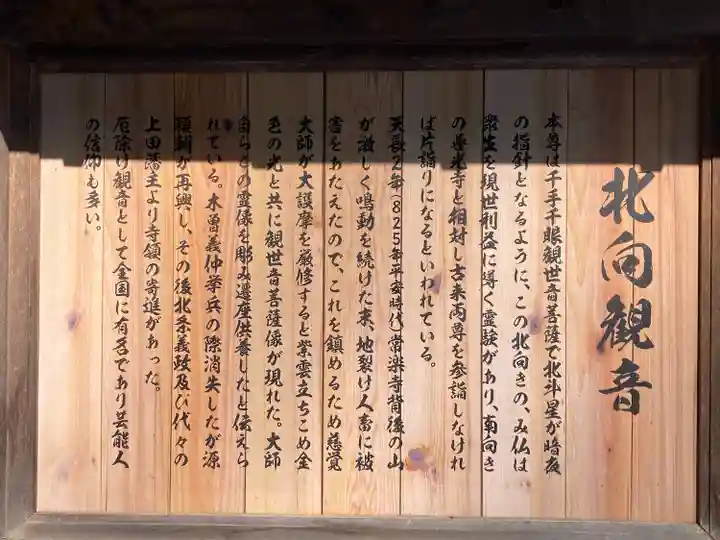 北向観音
本尊は千手千眼観世音菩薩で北斗星が暗夜
の指針となるように、この北向きの、み仏は
衆生を現世利益に導く霊験があり、南向き
の善光寺と相対し古来両尊を参詣しなけれ
ば片詣りになるといわれている。
天長2年(825年平安時代)常楽寺背後の山
が激しく鳴動を続けた末、地裂け人畜に被
害をあたえたので、これを鎮めるため慈覚
大師が大護摩を厳修すると紫雲立ちこめ金
色の光と共に観世音菩薩像が現れた。大師
自らその霊像を彫み遷座供養したと伝えら
れている。木曽義仲挙兵の際消失したが源
頼朝が再興し、その後北条義政及び代々の
上田藩主より寺領の寄進があった。
厄除け観音として全国に有名であり芸能人
の信仰も多い。